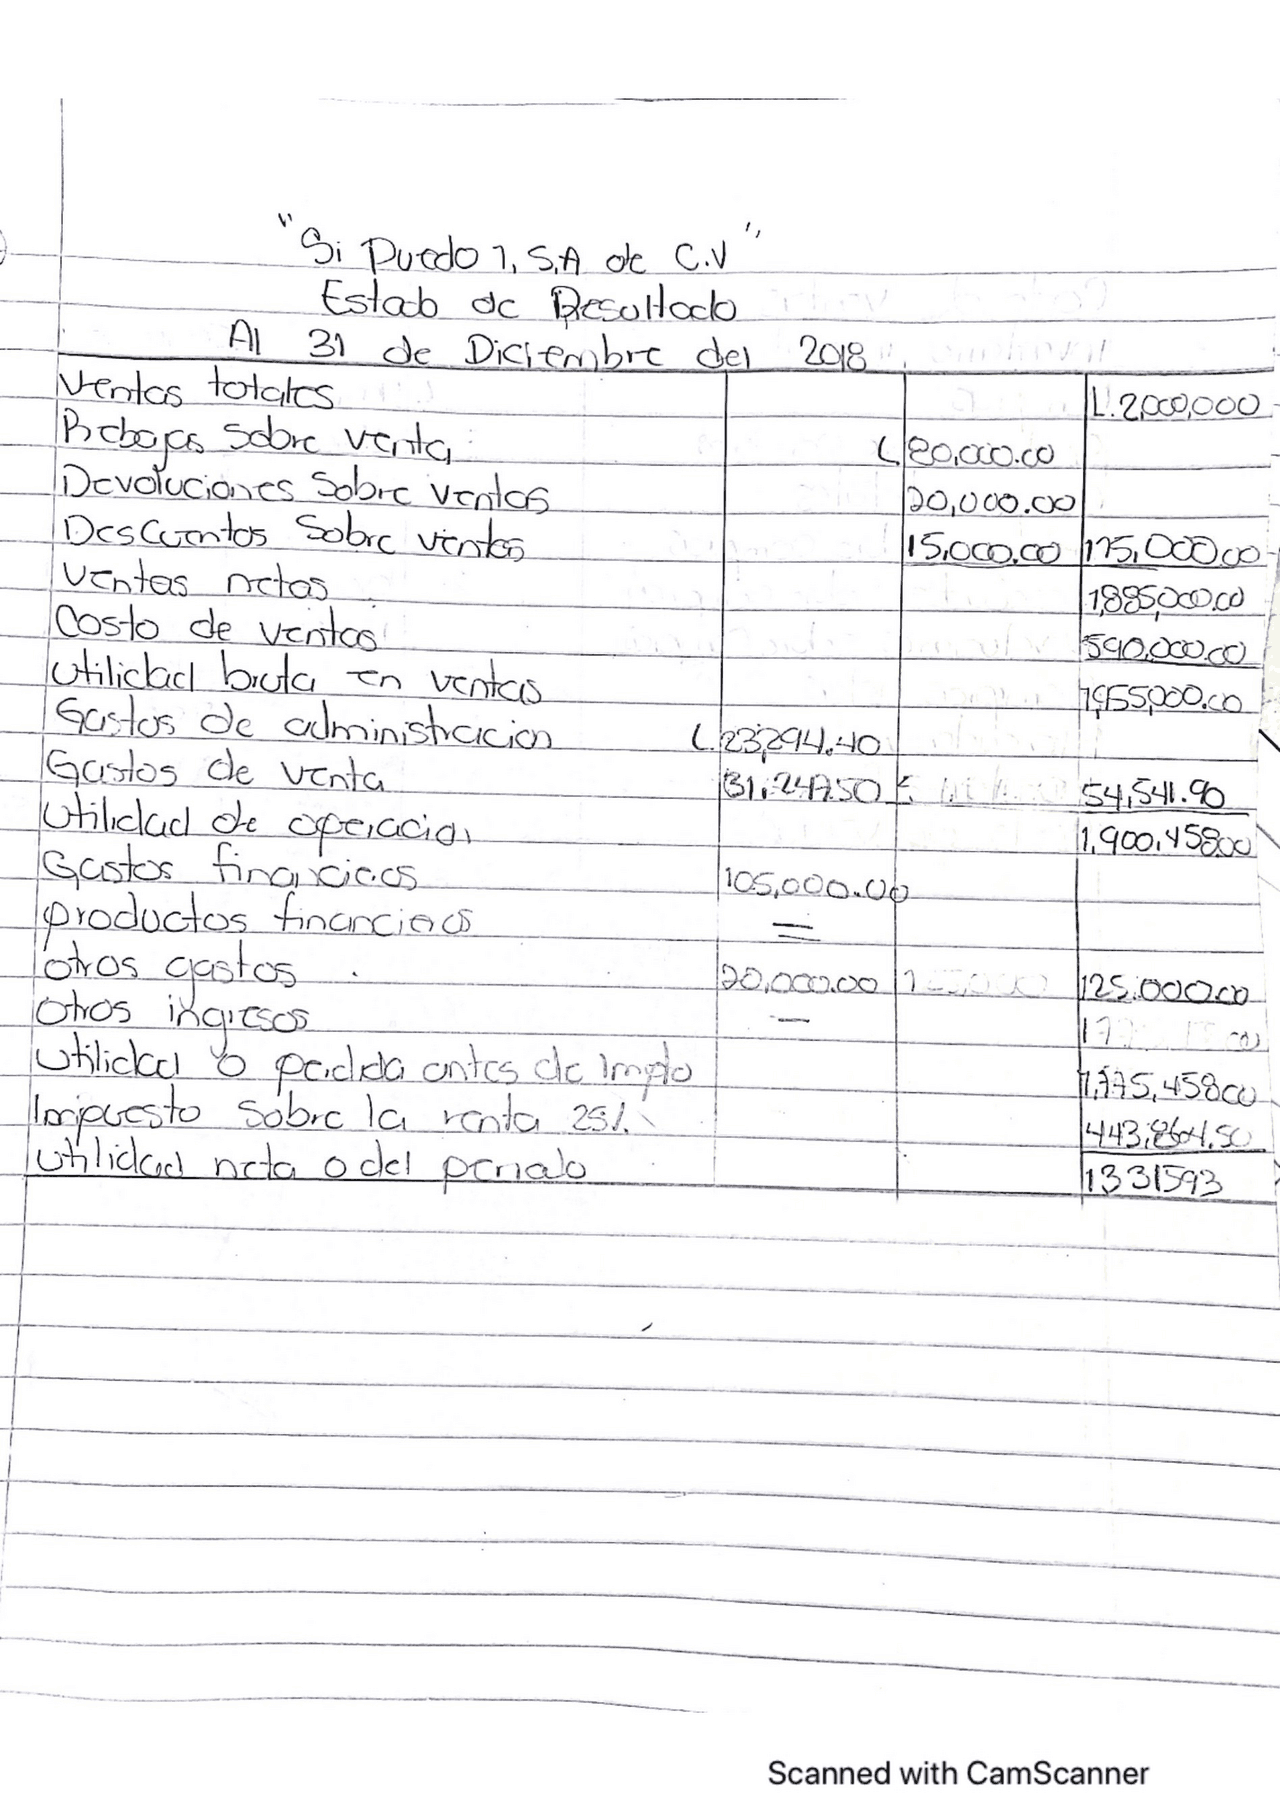 "Si Puedo 1, S.A de C.V"
Estado de Resultado
Al 31 de Diciembre del 2018
Ventas totales L. 2,000,000
Rebajas sobre venta L 80,000.00
Devoluciones sobre ventas 20,000.00
Descuentos sobre ventas 15,000.00 115,000.00
Ventas netas 1,885,000.00
Costo de ventas 590,000.00
Utilidad bruta en ventas 1,955,000.00
Gastos de administracion L. 23,294.40
Gastos de venta 31,247.50 54,541.90
Utilidad de operacion 1,900,458.00
Gastos financieros 105,000.00
productos financieros =
otros gastos 20,000.00 125,000.00
Otros ingresos —
Utilidad o perdida antes de Impto 1,775,458.00
Impuesto sobre la renta 25%. 443,864.50
Utilidad neta o del periodo 1331593
Scanned with CamScanner